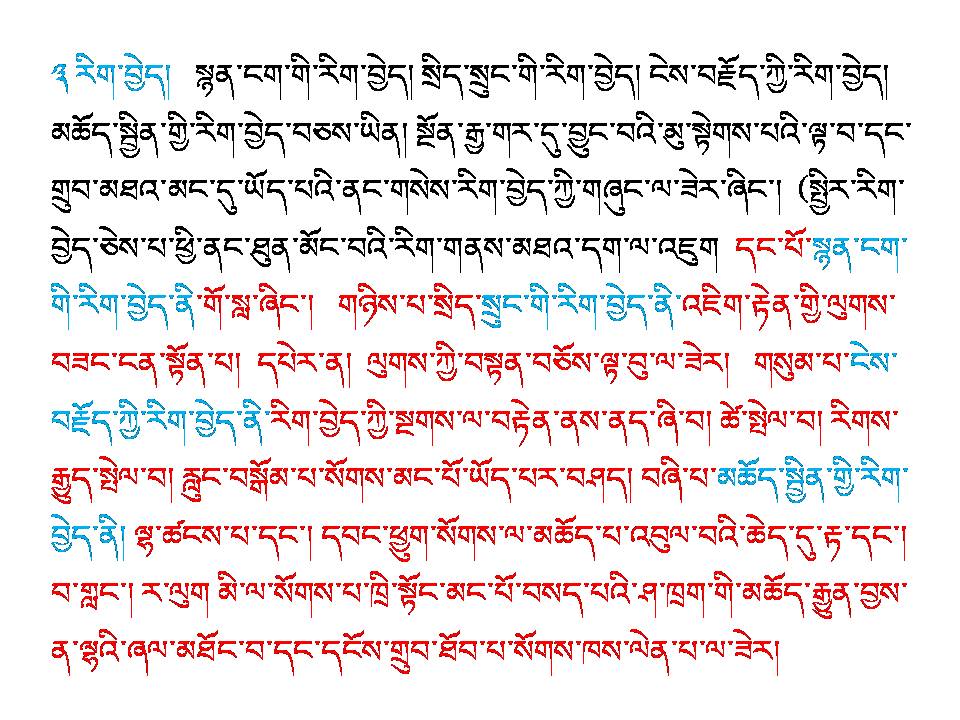 ༣ རིག་བྱེད། སྙན་ངག་གི་རིག་བྱེད། སྲིད་སྲུང་གི་རིག་བྱེད། ངེས་བརྗོད་ཀྱི་རིག་བྱེད།
མཆོད་སྦྱིན་གྱི་རིག་བྱེད་བཅས་ཡིན། སྔོན་རྒྱ་གར་དུ་བྱུང་བའི་མུ་སྟེགས་པའི་ལྟ་བ་དང་
གྲུབ་མཐའ་མང་དུ་ཡོད་པའི་ནང་གསེས་རིག་བྱེད་ཀྱི་གཞུང་ལ་ཟེར་ཞིང་། (སྤྱིར་རིག་
བྱེད་ཅེས་པ་ཕྱི་ནང་ཐུན་མོང་བའི་རིག་གནས་མཐའ་དག་ལ་འཇུག དང་པོ་སྙན་ངག་
གི་རིག་བྱེད་ནི་གོ་སླ་ཞིང་། གཉིས་པ་སྲིད་སྲུང་གི་རིག་བྱེད་ནི་འཇིག་རྟེན་གྱི་ལུགས་
བཟང་ངན་སྟོན་པ། དཔེར་ན། ལུགས་ཀྱི་བསྟན་བཅོས་ལྟ་བུ་ལ་ཟེར། གསུམ་པ་ངེས་
བརྗོད་ཀྱི་རིག་བྱེད་ནི་རིག་བྱེད་ཀྱི་སྔགས་ལ་བརྟེན་ནས་ནད་ཞི་བ། ཚེ་སྤེལ་བ། རིགས་
རྒྱུད་སྤེལ་བ། རླུང་བསྒོམ་པ་སོགས་མང་པོ་ཡོད་པར་བཤད། བཞི་པ་མཆོད་སྦྱིན་གྱི་རིག་
བྱེད་ནི། ལྷ་ཚངས་པ་དང་། དབང་ཕྱུག་སོགས་ལ་མཆོད་པ་འབུལ་བའི་ཆེད་དུ་རྟ་དང་།
བ་གླང་། ར་ལུག མི་ལ་སོགས་པ་ཁྲི་སྟོང་མང་པོ་བསད་པའི་ཤ་ཁྲག་གི་མཆོད་རྒྱུན་བྱས་
ན་ལྷའི་ཞལ་མཐོང་བ་དང་དངོས་གྲུབ་ཐོབ་པ་སོགས་ཁས་ལེན་པ་ལ་ཟེར།